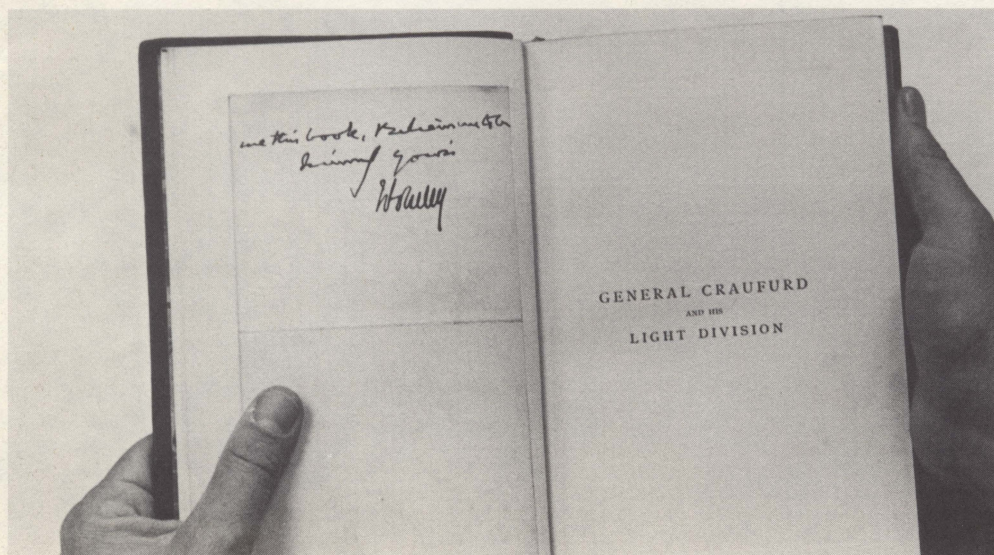 me this book, & believe me to be
sincerely yours
Wolseley
GENERAL CRAUFURD
AND HIS
LIGHT DIVISION